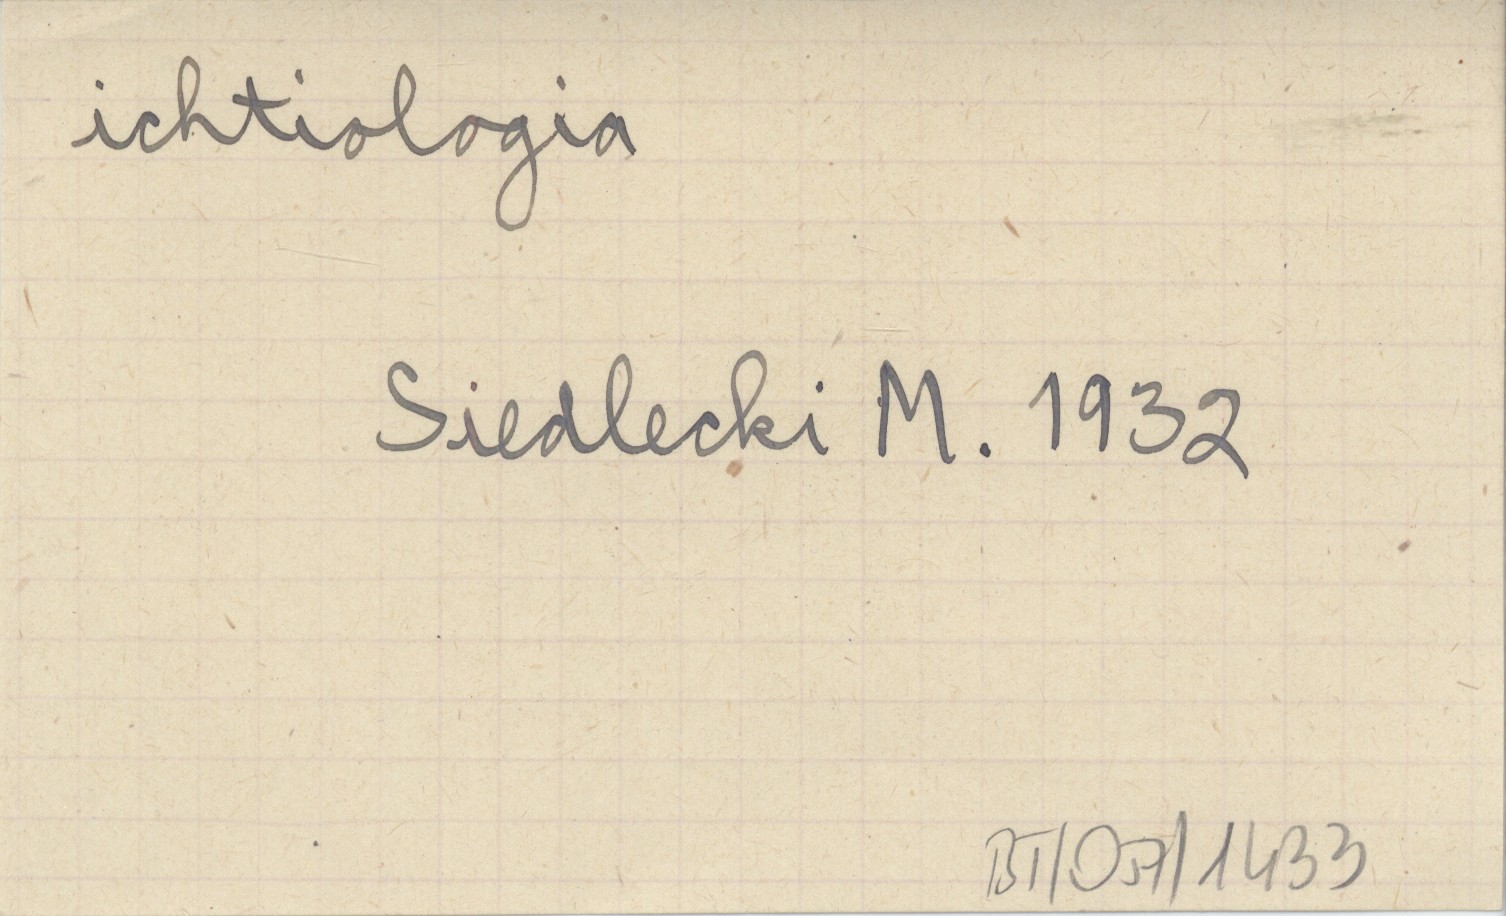 ichtiologia
Siedlecki M. 1932
BT/OJA/1433